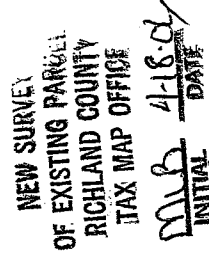 NEW SURVEY
OF EXISTING PARCEL
RICHLAND COUNTY
TAX MAP OFFICE
MLB 4-18-02
INITIAL DATE